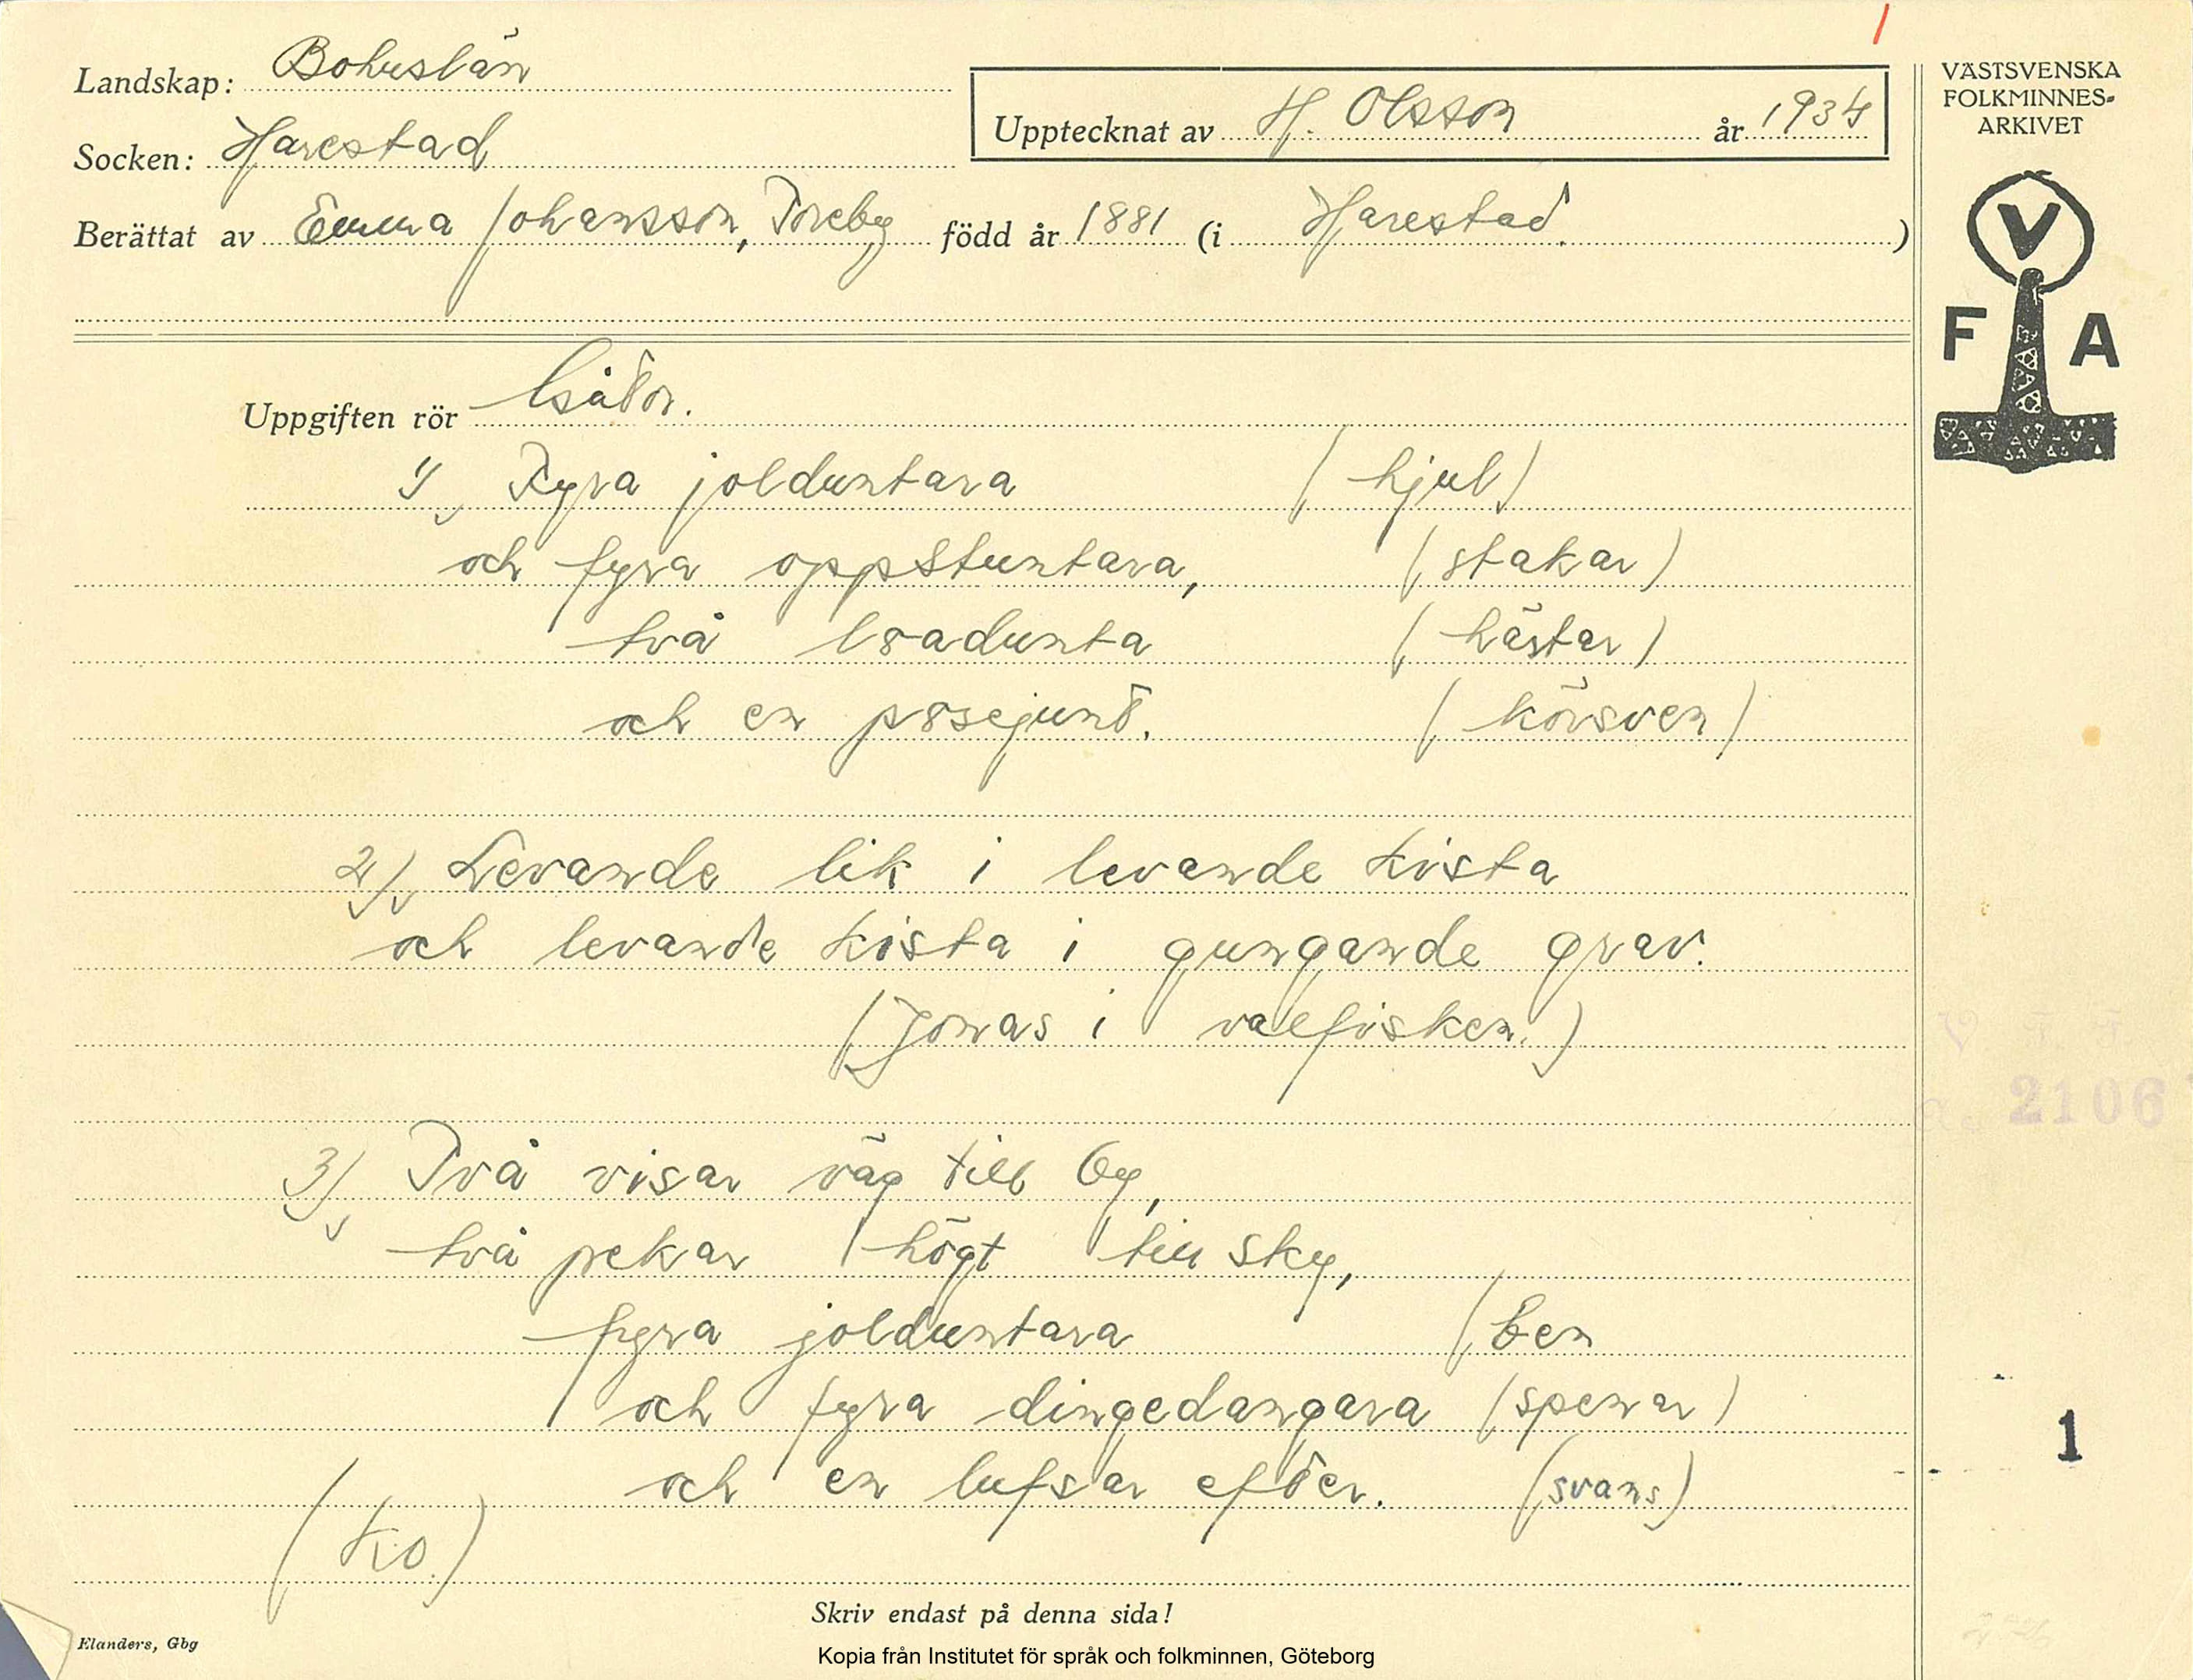 1
VÄSTSVENSKA
FOLKMINNES-
ARKIVET
V
F A
Landskap: Bohuslän
Upptecknat av H. Olsson år 1934
Socken: Harestad
Berättat av Emma Johansson, Toreby född år 1881 (i Harestad.)
Uppgiften rör Gåtor.
1) Fyra jolduntara (hjul)
och fyra oppstuntara, (stakar)
två lsadunta (hästar)
och en (körsven)
2) Levande lik i levande kista
och levande kista i gungande grav.
(Jonas i valfisken.)
2106
3) Två visar väg till by,
två pekar högt till sky,
fyra jolduntara (ben
och fyra dingedangara (spenar)
och en lufsar efter. (svans)
(Ko.)
1
Skriv endast på denna sida!
Elanders, Gbg
Kopia från Institutet för språk och folkminnen, Göteborg